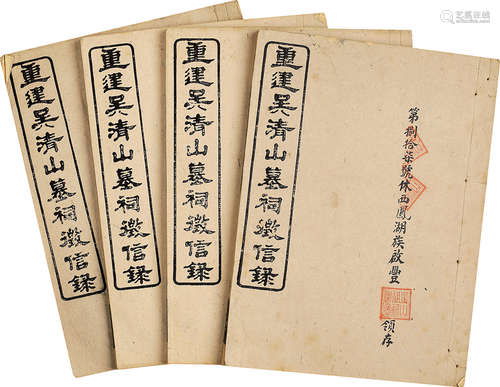 重建吳清山墓祠徵信錄
重建吳清山墓祠徵信錄
重建吳清山墓祠徵信錄
重建吳清山墓祠徵信錄
第捌拾柒號休西鳳湖族啟豐
領存